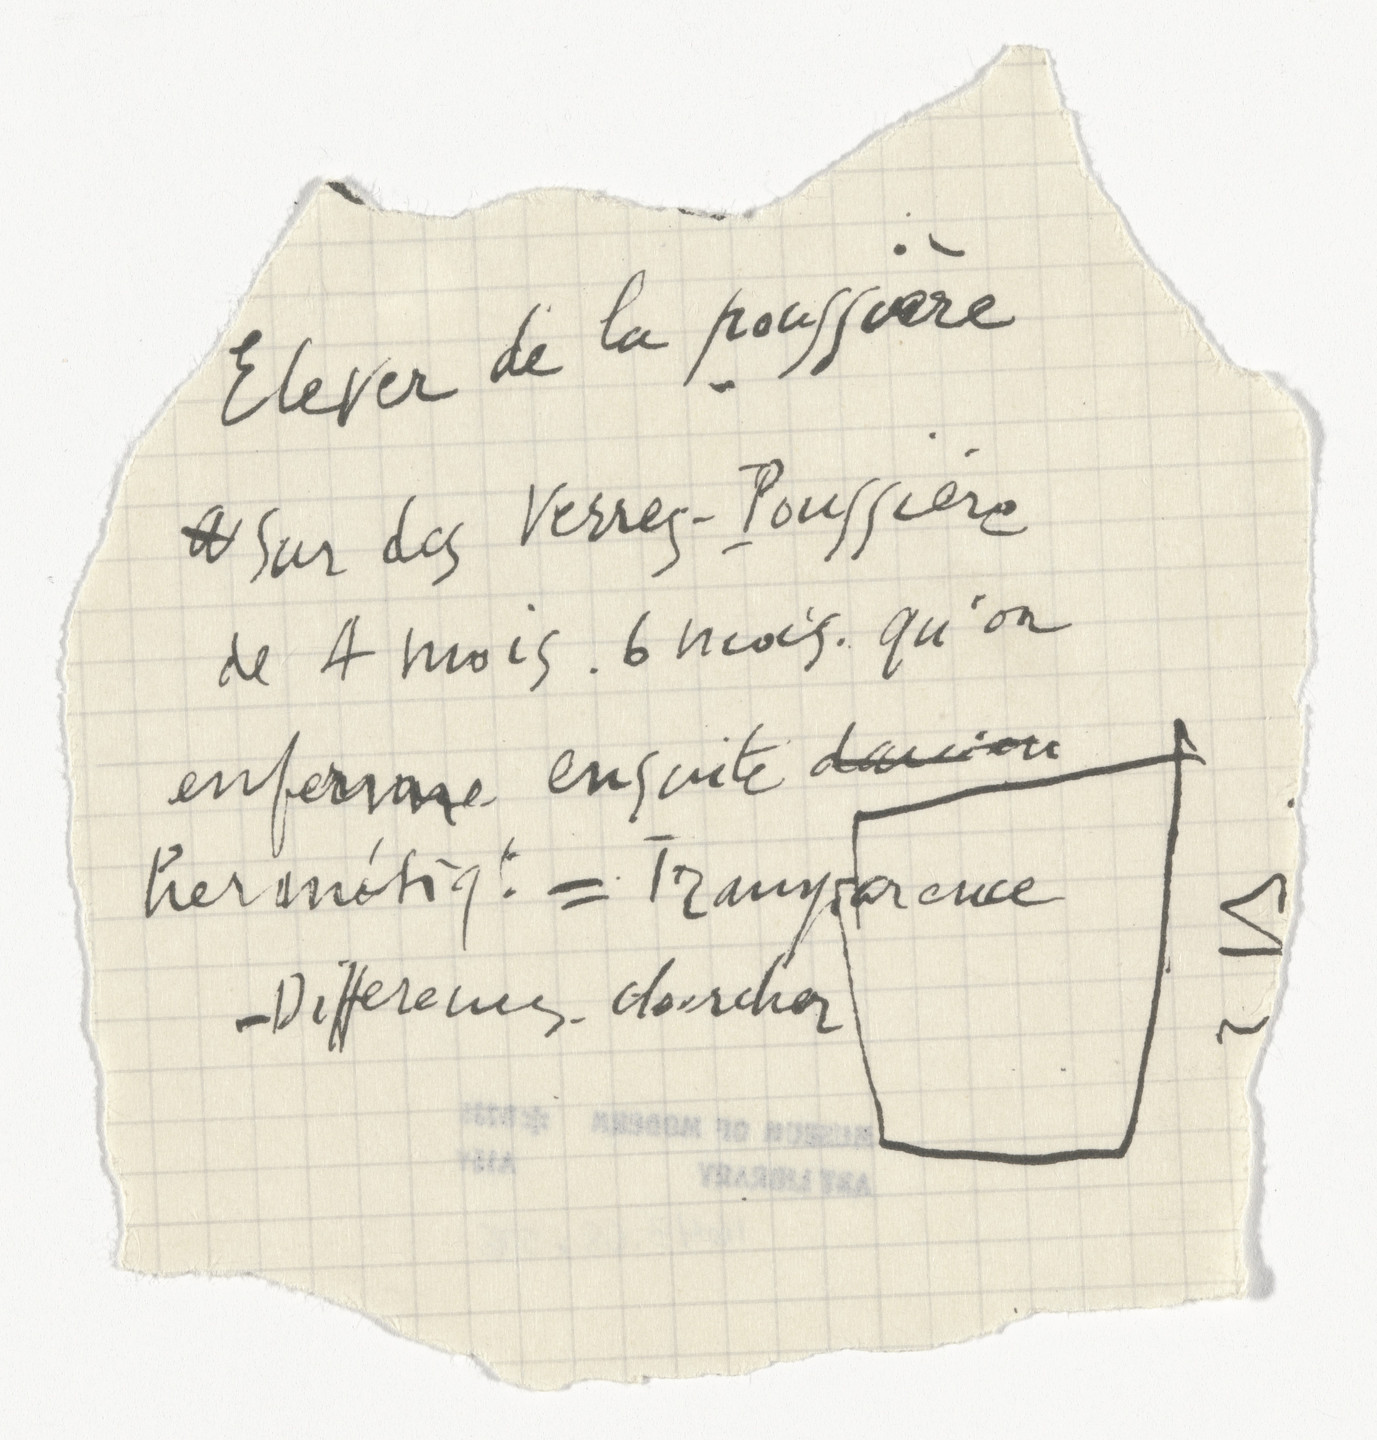 Elever de la poussière
Sur des Verres- Poussière
de 4 mois. 6 mois. qu'on
enferme ensuite
hermétiqt. = Transparence
- Differences. chercher
MUSEUM OF MODERN
ART LIBRARY